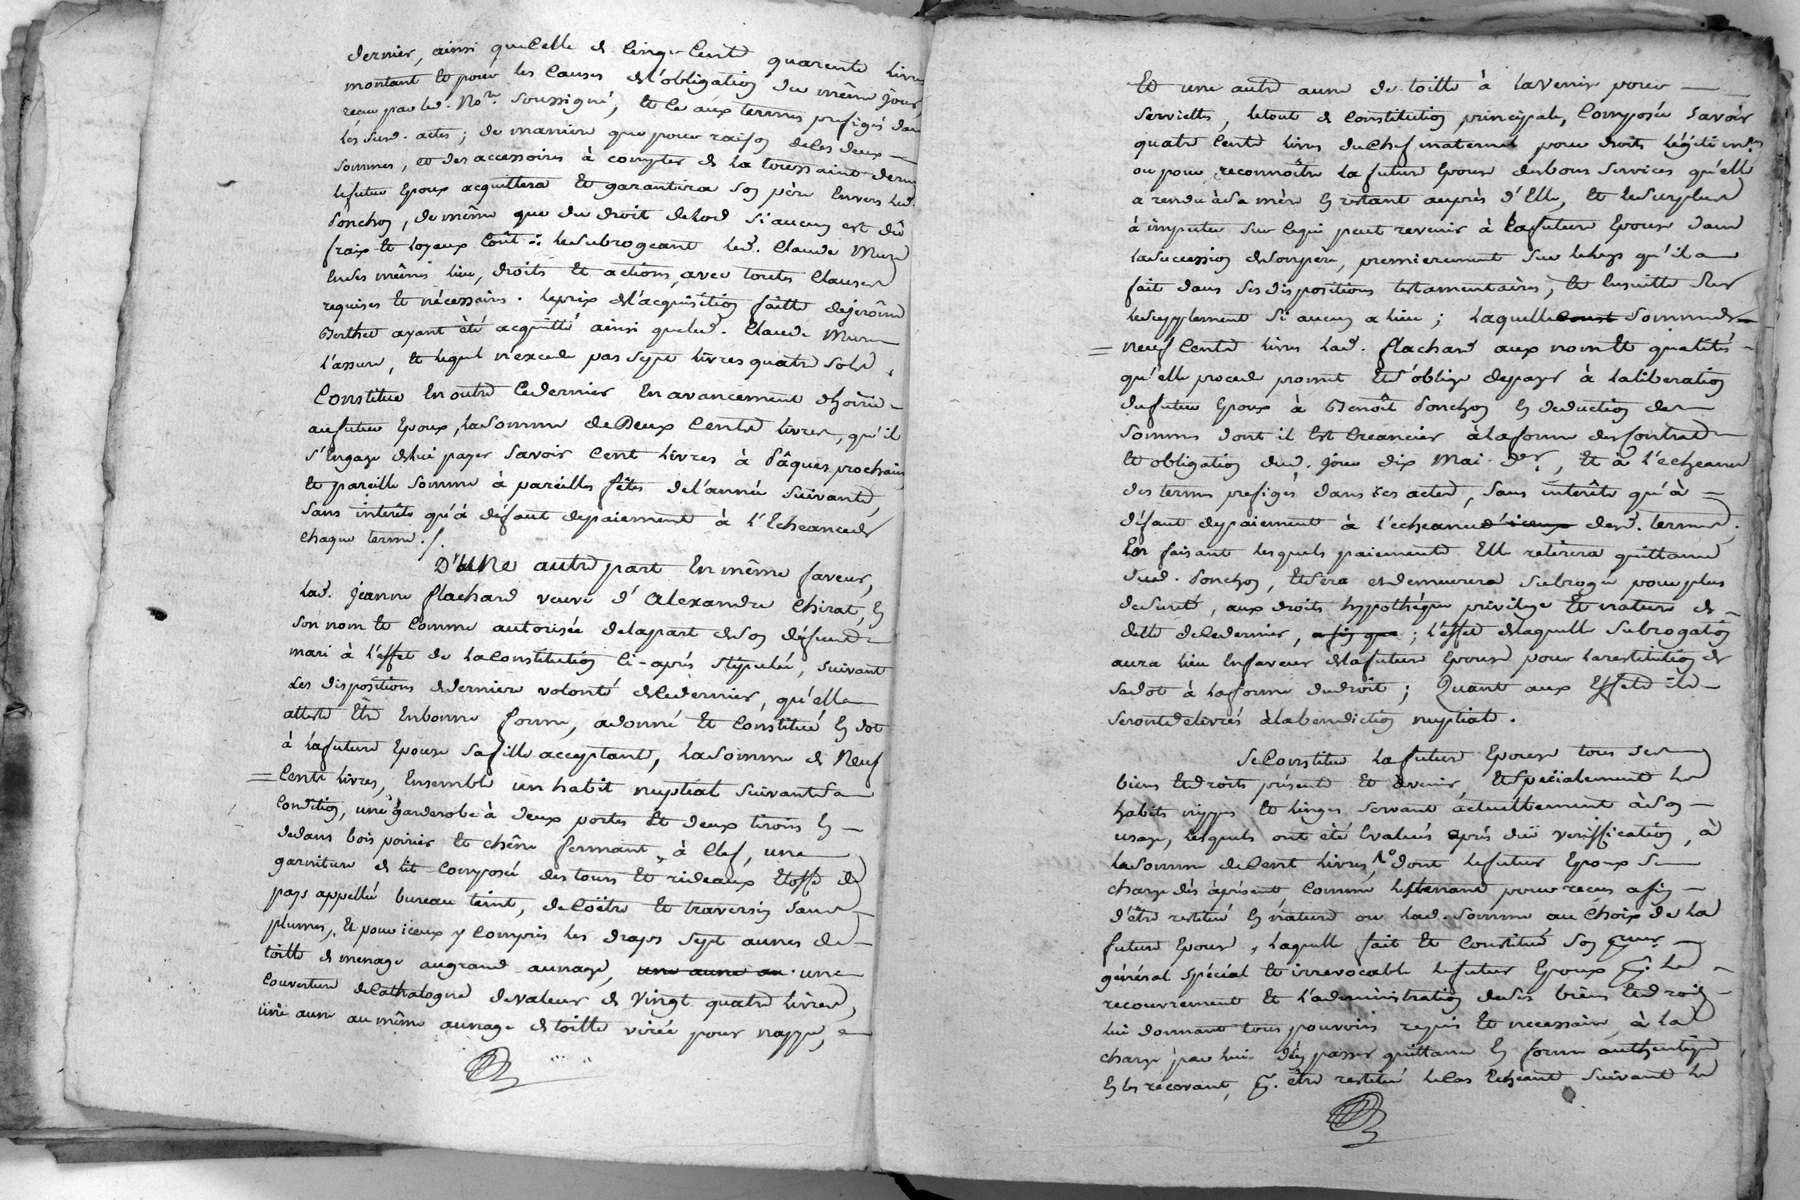 dernier, ainsi que celle de cinq Cents quarente livres
montant et pour les Causes de l'obligation du même jour,
reçue par led. No.re Soussigné, et ce aux termes prefigés dans
les susd. actes; de maniere que pour raison de ces deux
sommes, et des accessoires à compter de la toussaint derne
le futur Epoux acquittera et garantira son père Envers led.
Ponchon, de même que du droit de lod si aucun est dû
fraix et loyaux Coûts: le subrogeant led. Claude Mure
en ses mêmes lieu, droits et actions, avec toutes Clauses
requises et nécessaires. le prix de l'acquisition faitte de jerôme
Berthet ayant été acquitté ainsi que led. Claude Mure
l'assure, et lequel n'excede pas sept livres quatre sols.
Constitue En outre Ce dernier En avancement d'hoirie
au futur Epoux, la somme de Deux Cents livres, qu'il
s'Engage de lui payer savoir Cent livres à Pâques prochain
et pareille somme à pareilles fêtes de l'année suivante,
sans interêts qu'à défaut de paiement à l'Echeance de
chaque terme./.
D'une autre part En même faveur,
lad. jeanne flachard veuve d'Alexandre Chirat, En
son nom et Comme autorisée de la part de son défunt
mari à l'effet de la Constitution Ci-après stipulée, suivant
les dispositions de dernière volonté de ce dernier, qu'elle
atteste être En bonne forme, a donné et Constitué En dot
à la future Epouse sa fille acceptante, la somme de Neuf
Cents livres, Ensemble un habit nuptial suivant sa
Condition, une garderobe à deux portes et deux tiroirs En
dedans bois poirier et chêne fermant à Clef, une
garniture de lit Composée des tours et rideaux Etoffe du
pays appellée bureau teint, de Coëtre et traversin sans
plumes, et pour iceux y Compris les draps sept aunes de
toille de menage au grand aunage, une aune au une
Couverture de Cathalogne de valeur de vingt quatre livres,
une aune au même aunage de toille virée pour nappe,
et une autre aune de toille à l'avenir pour
serviette, le tout de Constitution principale, Composée savoir
quatre Cents livres du Chef maternel pour droits légitimes
ou pour reconnoître la future Epouse des bons services qu'elle
a rendu à sa mère En restant auprès d'Elle, et le surplus
à imputer sur Ce qui peut revenir à la future Epouse dans
la succession de son père, premierement sur le legs qu'il a
fait dans ses dispositions testamentaires, et Ensuitte sur
le supplement si aucun a lieu; laquelle somme de
neuf Cents livres lad. flachard aux noms et qualités
qu'elle procede promet et s'oblige de payer à la liberation
du futur Epoux à Benoît Ponchon En deduction des
sommes dont il Est Creancier à la forme des Contrat
et obligation dud. jour dix Mai der., et à l'echeance
des termes prefigés dans ces actes, sans interêts qu'à
défaut de paiement à l'echeance d'iceux desd. termes.
En faisant lesquels paiements Elle retirera quittance
dud. Ponchon, et sera et demeurera subrogée pour plus
de sureté, aux droits hypothèque privilege et nature de
dette de ce dernier, afin que; l'effet de laquelle subrogation
aura lieu En faveur de la future Epouse pour la restitution de
sa dot à la forme du droit; Quant aux Effets ils
seront delivrés à la benediction nuptiale.
Se Constitue la future Epouse tous ses
biens et droits présents et avenir, et spécialement les
habits nippes et linges servant actuellement à son
usage, lesquels ont été Evalués après duë verification, à
la somme de Cent livres, dont le futur Epoux se
charge dès àprésent Comme les tenant pour reçus afin
d'être restitué En nature ou lad. somme au Choix de la
future Epouse, laquelle fait et Constitue son procr.
général spécial et irrevocable le futur Epoux pr. le
recouvrement et l'administration de ses biens et droits
lui donnant tous pouvoirs requis et necessaire, à la
charge par lui d'en passer quittance En forme authentique
En les recevant, pr. être restitué le Cas Echeant suivant le